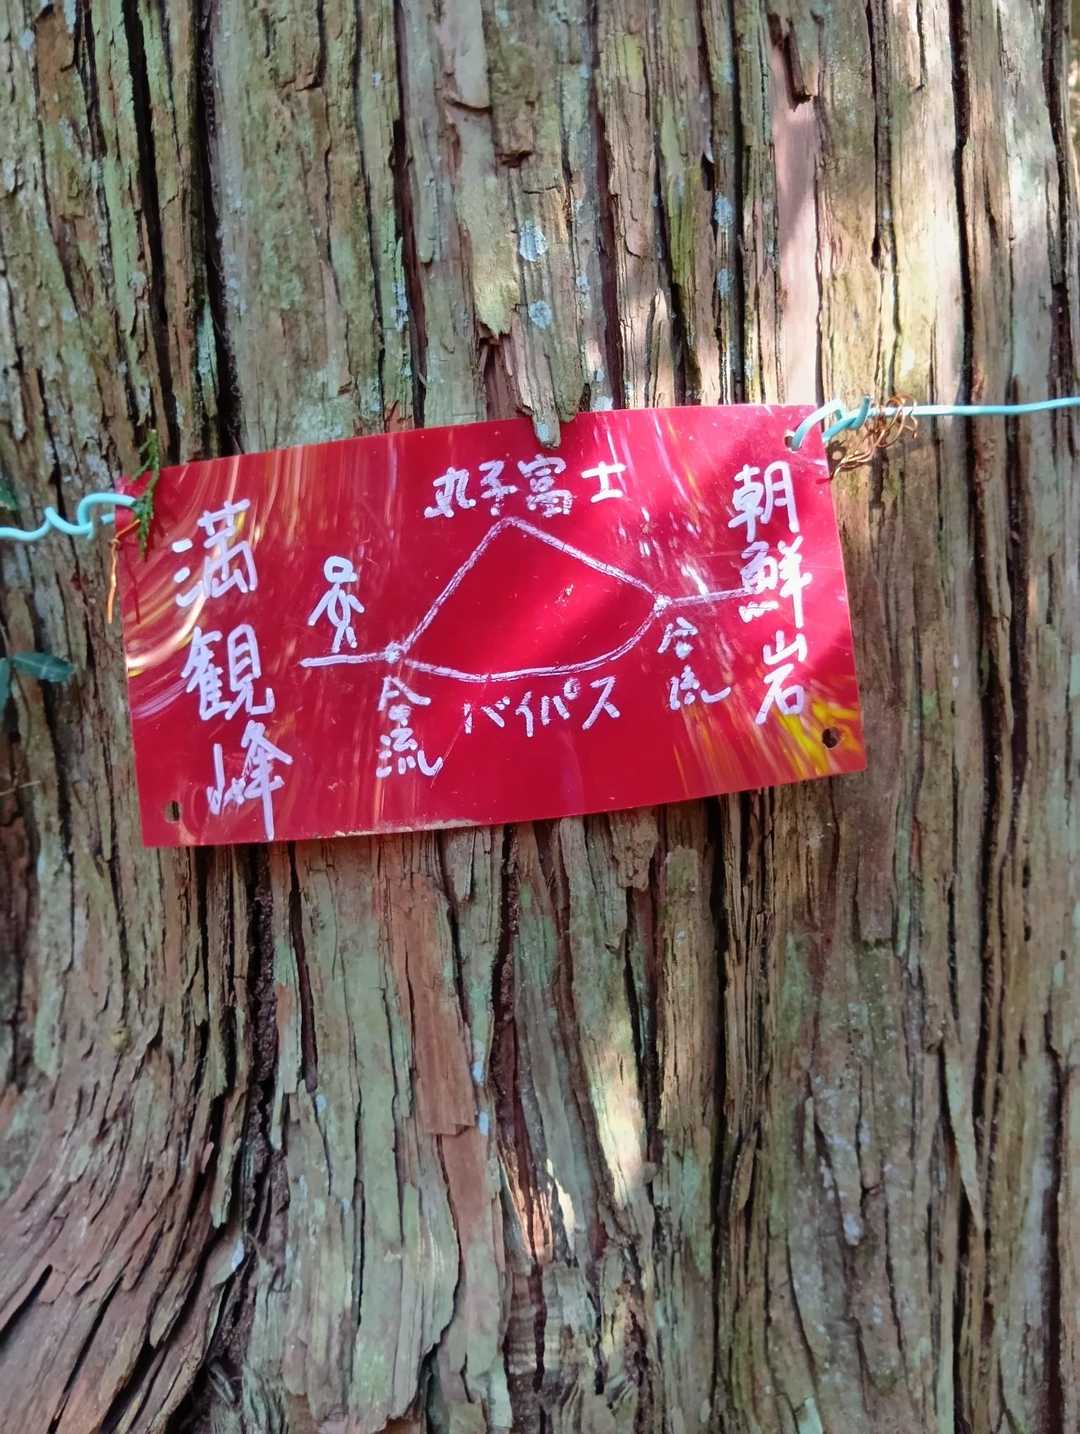 満観峰
丸子富士
朝鮮岩
合流
バイパス
合流